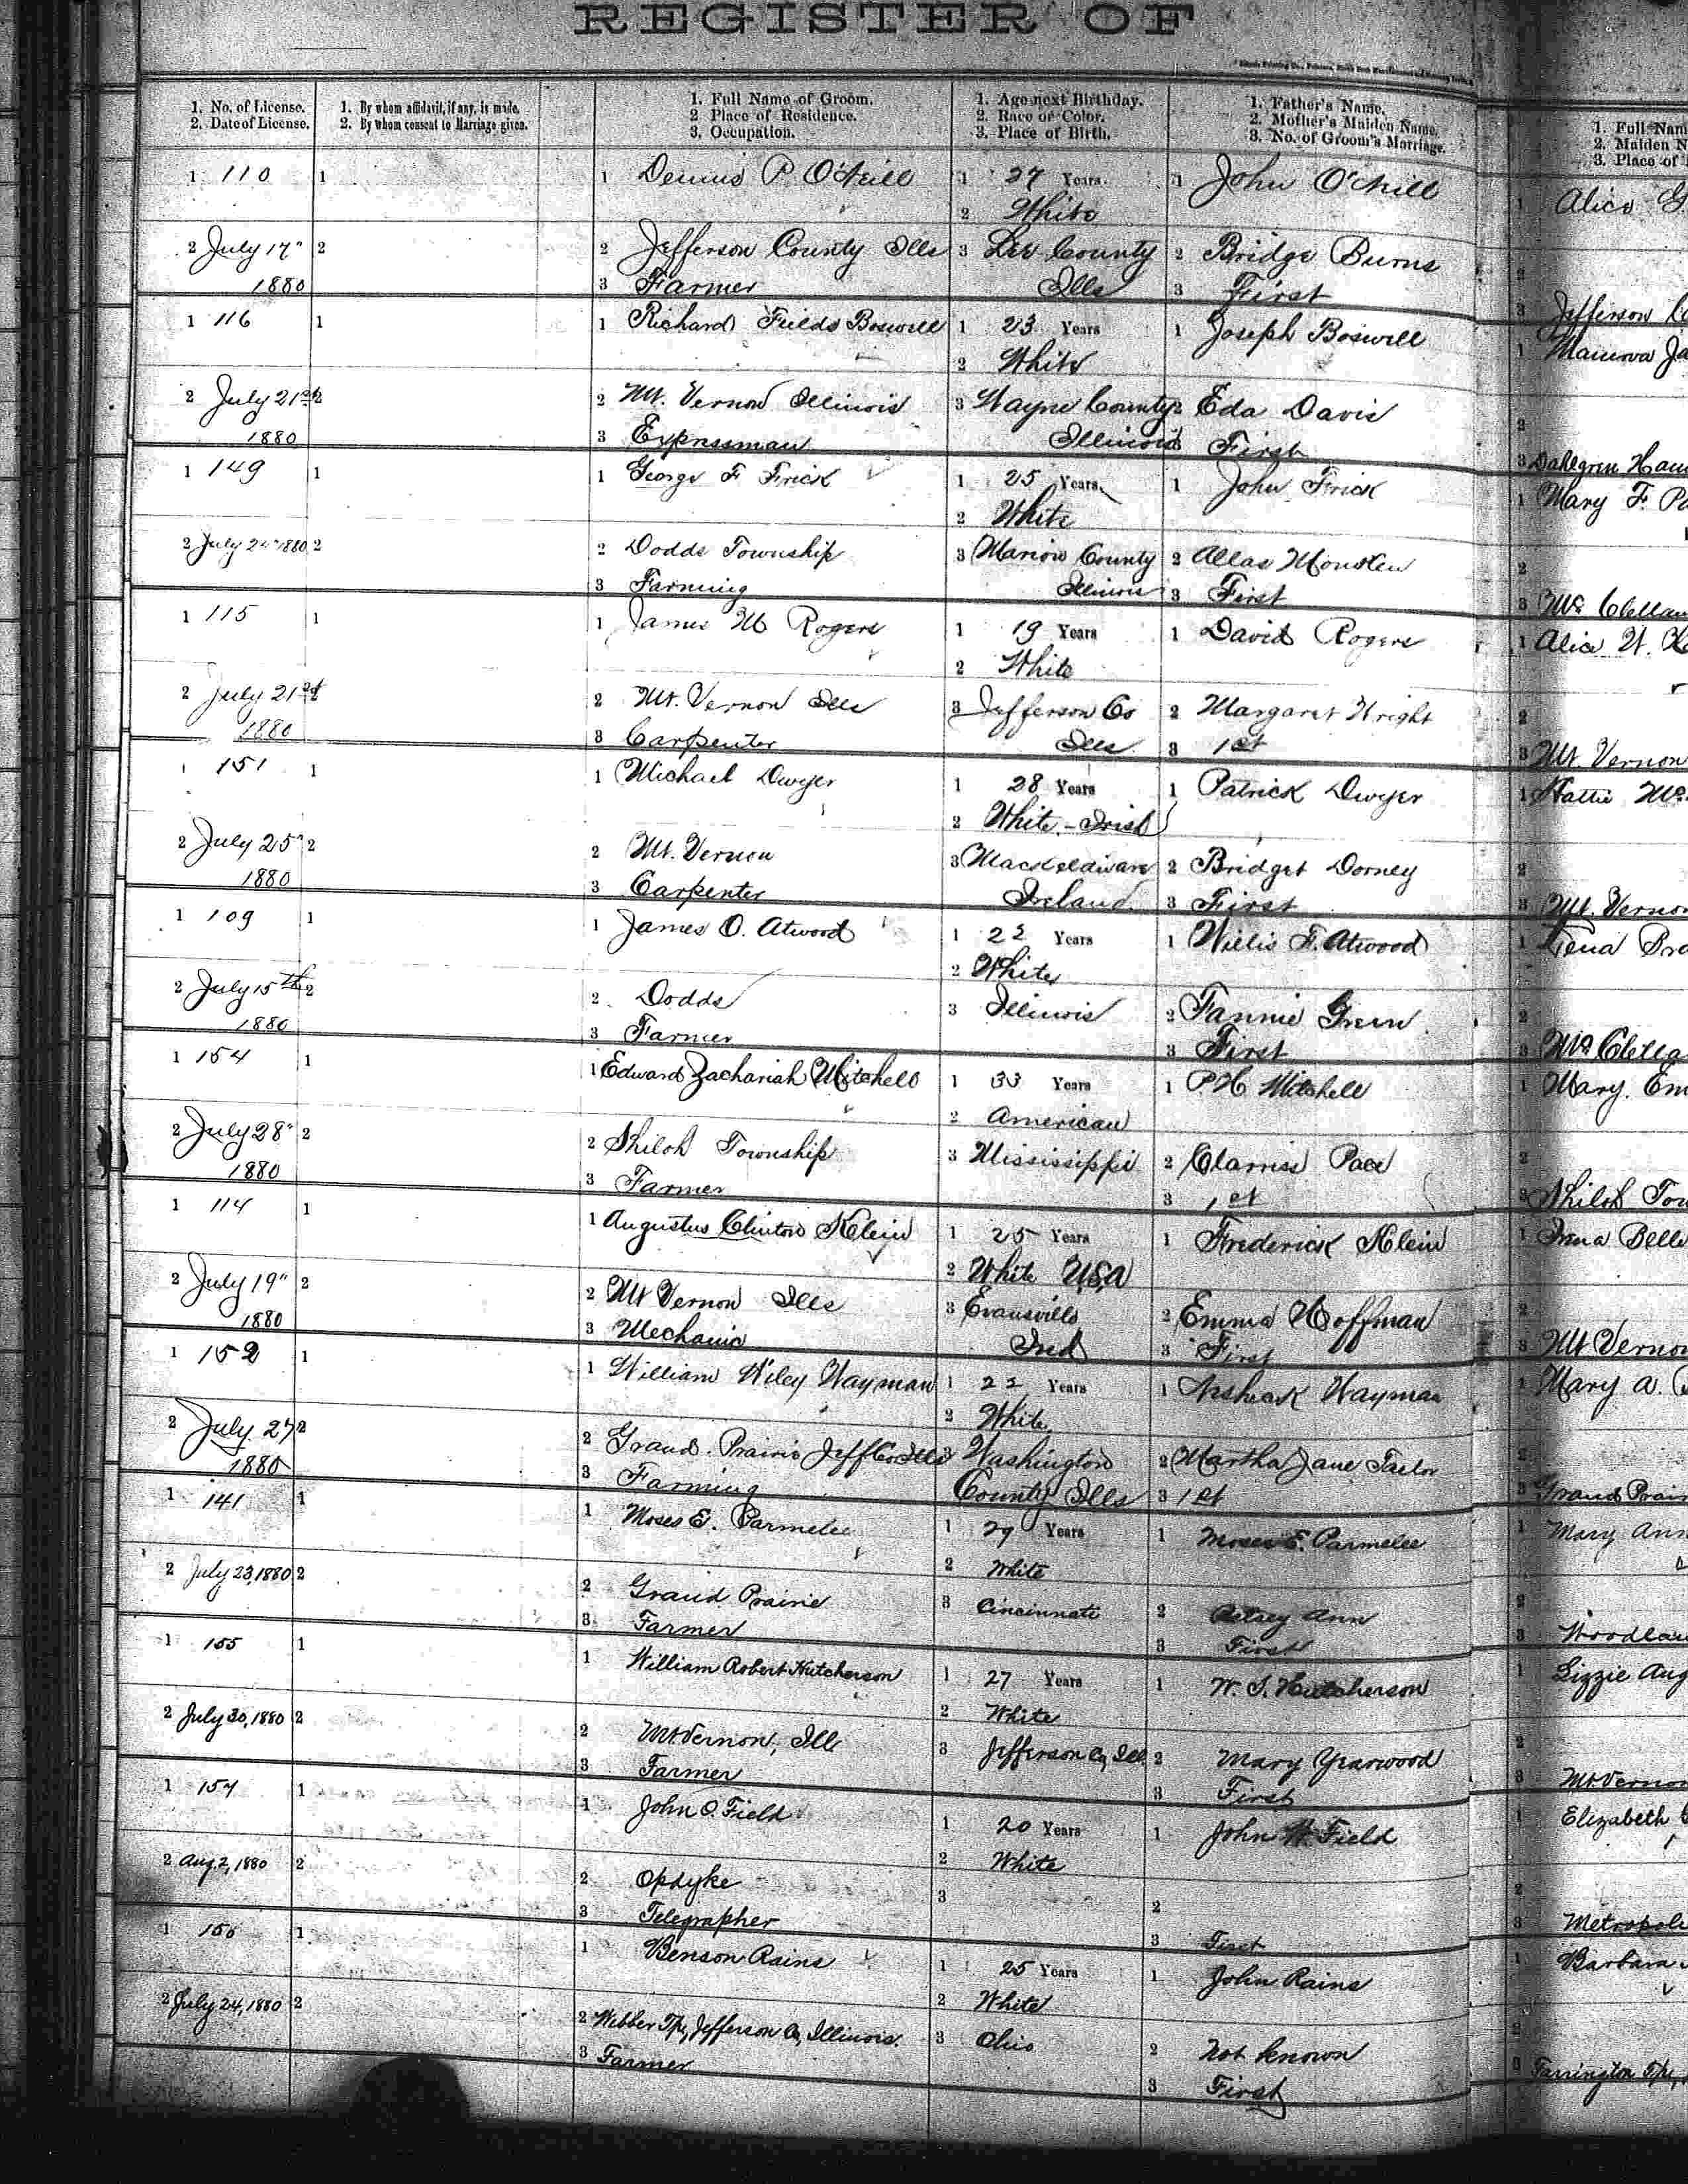 REGISTER OF
1. No. of License.
2. Date of License.
1. By whom affidavit, if any, is made.
2. By whom consent to Marriage given.
1. Full Name of Groom.
2. Place of Residence.
3. Occupation.
1. Age next Birthday.
2. Race or Color.
3. Place of Birth.
1. Father's Name.
2. Mother's Maiden Name.
3. No. of Groom's Marriage.
1. Full Nam
2. Maiden N
3. Place of
1 110 1 1 Dennis P. O'Neill 1 27 Years. 1 John O'Neill 1 Alice G
2 White
2 July 17" 2 2 Jefferson County Ills 3 Lee County 2 Bridge Burns 2
1880 3 Farmer Ills 3 First 3 Jefferson Co
1 116 1 1 Richard Fields Boswell 1 23 Years 1 Joseph Boswell 1 Ja
2 White
2 July 21st 2 2 Mt. Vernon Illinois 3 Wayne County 2 Eda Davis 2
1880 3 Expressman Illinois 3 First 3 Dahlgren Ham
1 149 1 1 George F Frick 1 25 Years 1 John Frick 1 Mary F. Pa
2 White
2 July 24" 1880 2 2 Dodds Township 3 Marion County 2 2
3 Farming Illinois 3 First 3 Mc Clellan
1 115 1 1 James M Rogers 1 19 Years 1 David Rogers 1 Alice W.
2 White
2 July 21st 2 2 Mt. Vernon Ills 3 Jefferson Co 2 Margaret Wright 2
1880 3 Carpenter Ills 3 1st 3 Mt. Vernon
1 151 1 1 Michael Dwyer 1 28 Years 1 Patrick Dwyer 1 Hattie Mc
2 White - Irish
2 July 25" 2 2 Mt. Vernon 3 2 Bridget Dorney 2
1880 3 Carpenter Ireland 3 First 3 Mt. Vernon
1 109 1 1 James O. Atwood 1 22 Years 1 Willis F. Atwood 1 Tena Bra
2 White
2 July 15th 2 2 Dodds 3 Illinois 2 Fannie Green 2
1880 3 Farmer 3 First 3 Mc Clella
1 154 1 1 Edward Zachariah Mitchell 1 33 Years 1 P. H. Mitchell 1 Mary. Em
2 American
2 July 28" 2 2 Shiloh Township 3 Mississippi 2 Clarrisa Pace 2
1880 3 Farmer 3 1st 3 Shiloh Tow
1 114 1 1 Augustus Clinton Klein 1 25 Years 1 Frederick Klein 1 Irena Belle
2 White U.S.A
2 July 19" 2 2 Mt Vernon Ills 3 Evansville 2 Emma Hoffman 2
1880 3 Mechanic Ind 3 First 3 Mt Vernon
1 152 1 1 William Wiley Wayman 1 22 Years 1 Wayman 1 Mary A.
2 White
2 July. 27 2 2 Grand. Prairie Jeff Co Ills 3 Washington 2 Martha Jane Tailor 2
1880 3 Farming County Ills 3 1st 3 Grand Prair
1 141 1 1 Moses E. Parmelee 1 29 Years 1 Moses E. Parmelee 1 Mary Ann
2 White
2 July 23, 1880 2 2 Grand Prairie 3 Cincinnati 2 Betsey Ann 2
3 Farmer 3 First 3 Woodlaw
1 155 1 1 William Robert Hutcherson 1 27 Years 1 W. S. Hutcherson 1 Lizzie Aug
2 White
2 July 30, 1880 2 2 Mt. Vernon, Ill 3 Jefferson Co, Ill 2 Mary Yearwood 2
3 Farmer 3 First 3 Mt. Vernon
1 157 1 1 John O. Field 1 20 Years 1 John W. Field 1 Elizabeth
2 White
2 Aug. 2, 1880 2 2 Opdyke 3 2 2
3 Telegrapher 3 First 3 Metropoli
1 150 1 1 Benson Rains 1 25 Years 1 John Rains 1 Barbara
2 White
2 July 24, 1880 2 2 Webber Tp., Jefferson Co, Illinois. 3 Ohio 2 Not known 2
3 Farmer 3 First 3 Farrington Tp.,